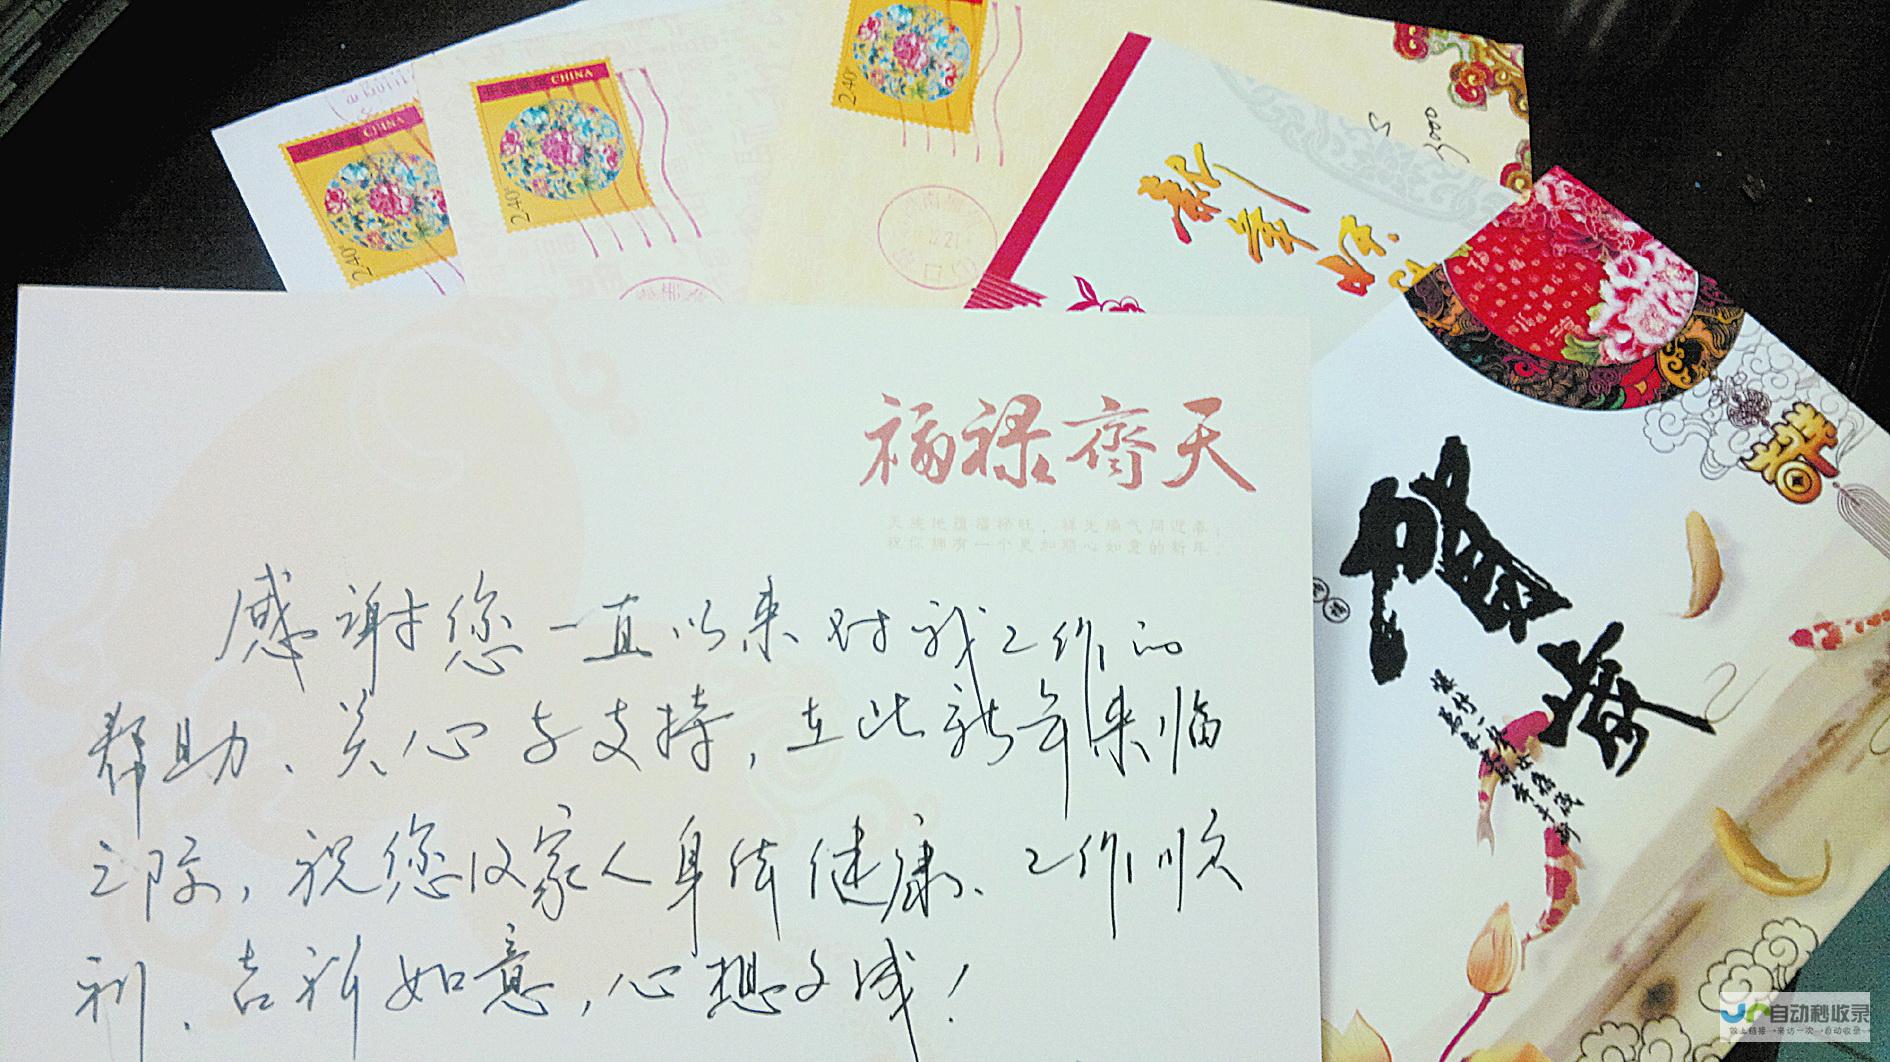 CHINA
2.40
CHINA
2.40
2.40
新年好
福禄齐天
祝你拥有一个更加顺心如意的新年。
感谢您一直以来对我工作的
帮助、关心与支持，在此新年来临
之际，祝您及家人身体健康、工作顺
利、吉祥如意，心想事成！
贺岁
自动秒收录
做上链接→来访一次→自动收录